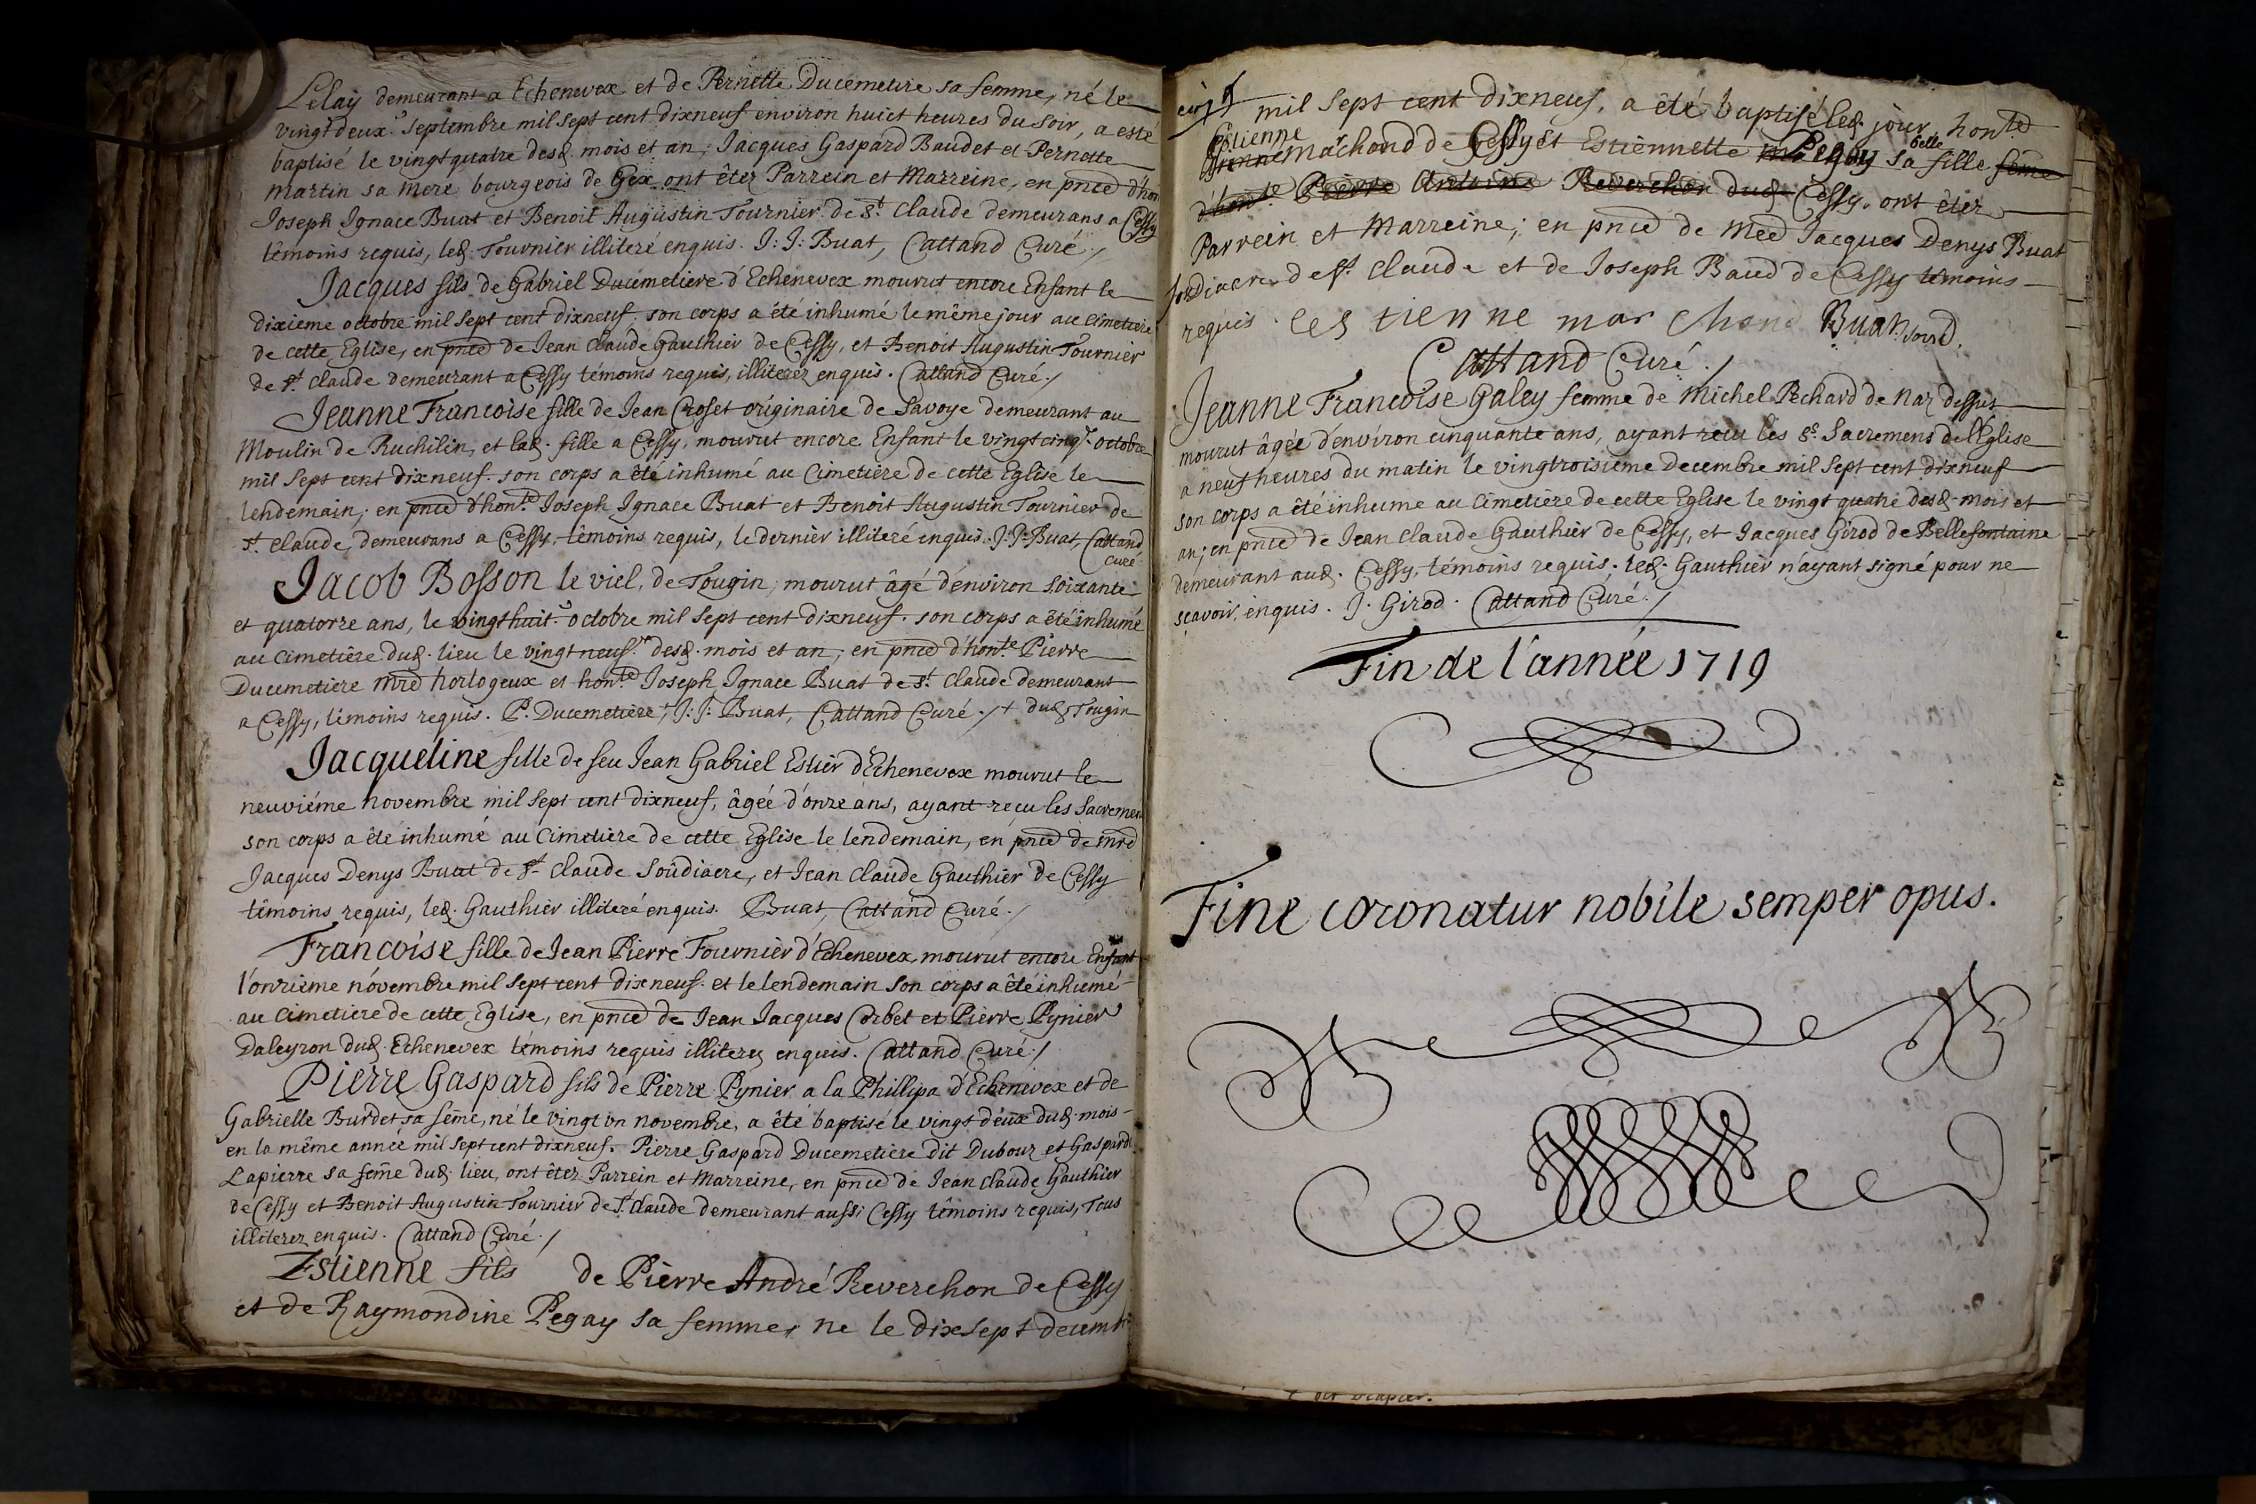 Lelay demeurant a Echenevex et de Pernette Ducemetire sa femme, né le
vingt deux.e Septembre mil sept cent dixneuf environ huict heures du soir, a esté
baptisé le vingtquatre desd. mois et an; Jacques Gaspard Baudet et Pernette
martin sa mere bourgeois de Gex ont êtez Parrein et Marreine, en pnce d'hon
Joseph Ignace Buat et Benoit Augustin Tournier de St. Claude demeurans a Cessy
témoins requis, led. Tournier illiteré enquis. J: J: Buat, Cattand Curé /
Jacques fils de Gabriel Ducimetiere d'Echenevex mourut encore Enfant le
dixieme octobre mil sept cent dixneuf. son corps a été inhumé le même jour au cimetiere
de cette Eglise, en pnce de Jean Claude Gauthier de Cessy, et Benoit Augustin Tournier
de St. claude demeurant a Cessy témoins requis, illiterez enquis. Cattand Curé. /
Jeanne Francoise fille de Jean Croset originaire de Savoye demeurant au
Moulin de Ruchilin, et lad. fille a Cessy, mourut encore Enfant le vingtcinq.e octobre
mil sept cent dixneuf. son corps a été inhumé au Cimetiere de cette Eglise le
lendemain; en pnce d'hon.te Joseph Ignace Buat et Benoit Augustin Tournier de
St. claude, demeurans a Cessy, têmoins requis, le dernier illiteré enquis. J. J. Buat, Cattand
Curé
Jacob Bosson le viel, de Tougin, mourut âgé d'environ soixante
et quatorze ans, le vingthuit.e octobre mil sept cent dixneuf. son corps a été inhumé
au cimetiére dud. lieu le vingt neuf.e desd. mois et an; en pnce d'hon.te Pierre
Ducemetiere mre horlogeux et hon.te Joseph Ignace Buat de St. Claude demeurant
a Cessy, têmoins requis. P. Ducemetiere, J: J: Buat, Cattand Curé. / + dud Tougin
Jacqueline fille de feu Jean Gabriel Estier d'Echenevex mourut le
neuviéme novembre mil sept cent dixneuf, âgée d'onze ans, ayant reçu les Sacremen
son corps a êté inhumé au Cimetiere de cette Eglise le lendemain, en pnce de mre
Jacques Denys Buat de St. Claude Soûdiacre, et Jean Claude Gauthier de Cessy
têmoins requis, led. Gauthier illiteré enquis. Buat, Cattand Curé. /
Francoise fille de Jean Pierre Fournier d'Echenevex, mourut encore Enfant
l'onzième novembre mil sept cent dixneuf. et le lendemain son corps a été inhumé
au cimetiere de cette Eglise, en pnce de Jean Jacques Corbet et Pierre Pynier
Daleyron dud. Echenevex témoins requis illiterez enquis. Cattand Curé. /
Pierre Gaspard fils de Pierre Pynier a la Phillipa d'Echenevex et de
Gabrielle Burdet sa feme, né le vingt un novembre, a été baptisé le vingt deux dud. mois
en la même année mil sept cent dixneuf. Pierre Gaspard Ducemetiere dit Dubour et Gasparde
Lapierre sa feme dud. lieu, ont êtez Parrein et Marreine, en pnce de Jean Claude Gauthier
de Cessy et Benoit Augustin Tournier de St. Claude demeurant aussi Cessy têmoins requis, Tous
illiterez enquis. Cattand Curé. /
Estienne fils de Pierre André Reverchon de Cessy
et de Raymondine Pegay sa femme, ne le dixsept decemb
mil sept cent dixneuf, a êté baptisé led. jour, hon.te
Estienne Marchand de Cessy et Estiennette Pegay sa belle fille feme
d'hon.te Pierre Antoine Reverchon dud Cessy, ont êtez
Parrein et Marreine; en pnce de Jacques Denys Buat
Soûdiacre de St. Claude et de Joseph Baud de Cessy témoins
requis. estienne mar chand Buat, Soud.
Cattand Curé. /
Jeanne Francoise Galey femme de Michel Pechard de Naz dessus
mourut âgée d'environ cinquante ans, ayant recu les Ss. Sacremens de l'Eglise
a neuf heures du matin le vingtroisieme decembre mil sept cent dixneuf
son corps a êté inhumé au Cimetiere de cette Eglise le vingt quatre desd. mois et
an; en pnce de Jean Claude Gauthier de Cessy, et Jacques Girod de Bellefontaine
demeurant aud. Cessy, témoins requis. led. Gauthier n'ayant signé pour ne
scavoir, enquis. J. Girod. Cattand Curé. /
Fin de l'année 1719
Fine coronatur nobile semper opus.